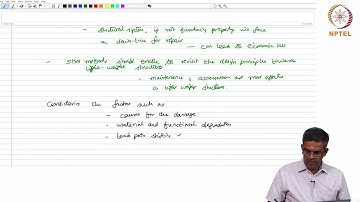 NPTEL
- structural system, if not functioning properly will face
a down-time for repair
- can lead to economic loss
- SHM methods should enable to revisit the design principles towards
light-weight structures
- maintenance & assessment are most effective
in light weight structures.
Considering the factors such as
- causes for the damage
- material and functional degradation
- load path shifting